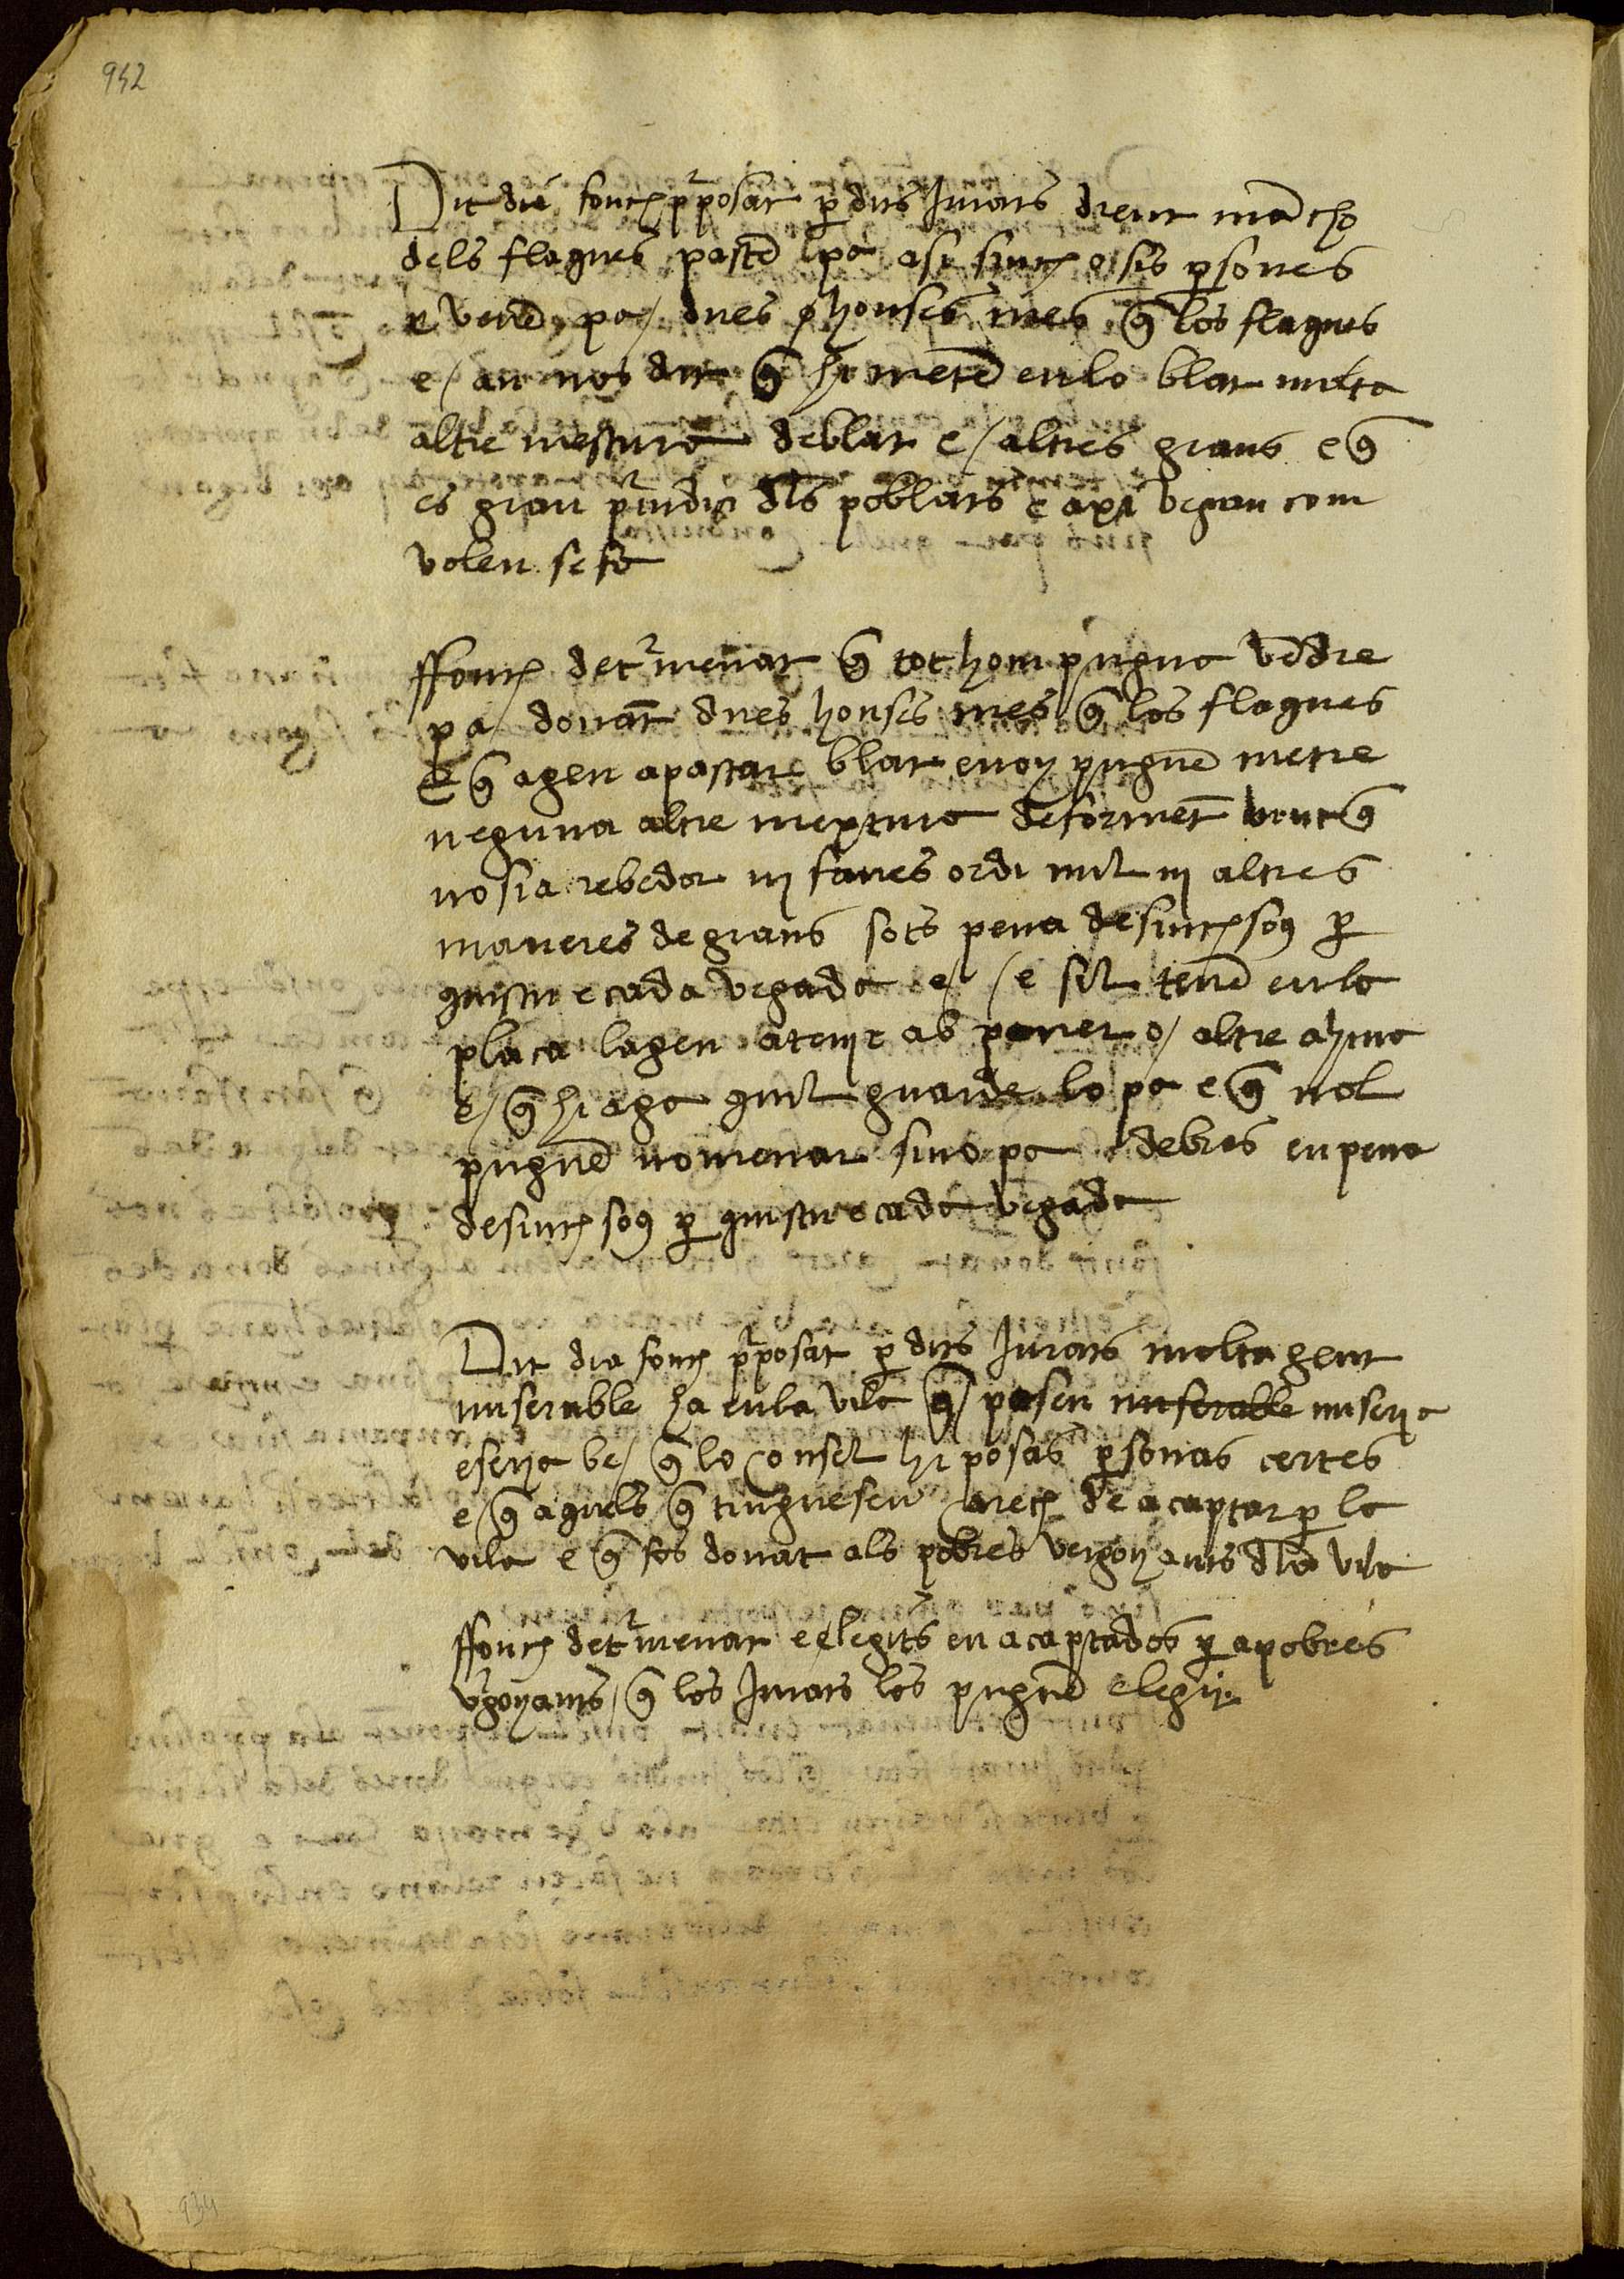 942
Dit die fonch pposat p dits Jurats dient mẽ cho
dels flaques pastẽ l pa asi sinch o sis psones
e venẽ pa / dues honses mes q̃ los flaques
e / an nos dit q̃ hi metẽ en lo blat molta
altre mestura de blat e / altres grans e q̃
es gran piudici dls poblats e axi vegau com
volen se fe
ffonch detmenat q̃ tot hom pugue vẽdre
pa / donãt dues honses mes q̃ los flaques
e q̃ agen a pastar blat e noy puguẽ metre
neguna altre mextura de formẽt brut q̃
no sia rebedor ni faves ordi mil ni altres
maneres de grans sots pena de sinch sous p
quiscu e cada vegada e / e sil tenẽ en la
plaça lagen a tenir ab paner o / altre ahina
e / q̃ hi age quil guarde lo pa e q̃ nol
puguẽ nomenar sino pa debres en pena
de sinch sous p quiscu e cada vegada
Dit dia fonch pposat p dits Jurats molta gent
miserable ha en la vila q̃ / pasen miserable miseria
e seria be / q̃ lo Consel hi posas psonas certes
e / q̃ aquels q̃ tinguesen carech de acaptar p la
vila e q̃ fos donat als pobres vergonyants d la vila
ffonch detmenat e elegits en acaptados p a pobres
vgonyants / q̃ los Jurats les puguẽ elegir
934